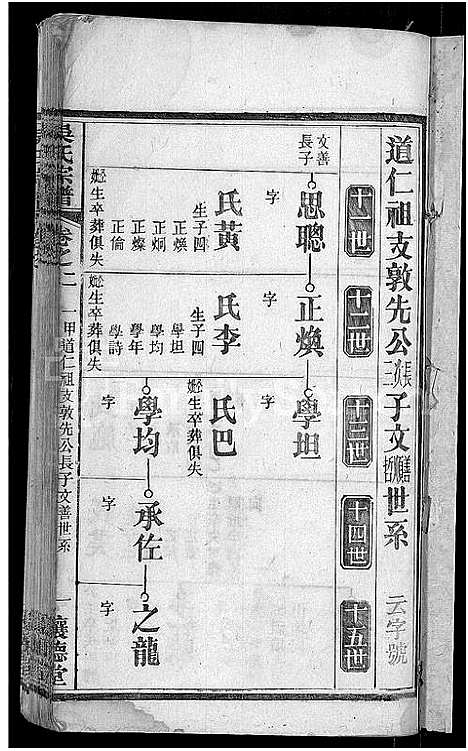 道仁祖支敦先公長次三子文善順哲世系
云字號
十一世
十二世
十三世
十四世
十五世
文善長子
思聰
正煥
學坦
字
氏黃
生子四
正煥
正炯
正燦
正倫
妣生卒葬俱失
字
氏李
生子四
學坦
學均
學年
學詩
妣生卒葬俱失
字
氏巴
妣生卒葬俱失
學均
承佐
之龍
字
字
字
吳氏宗譜
卷之二
一甲道仁祖支敦先公長子文善世系
一
讓德堂